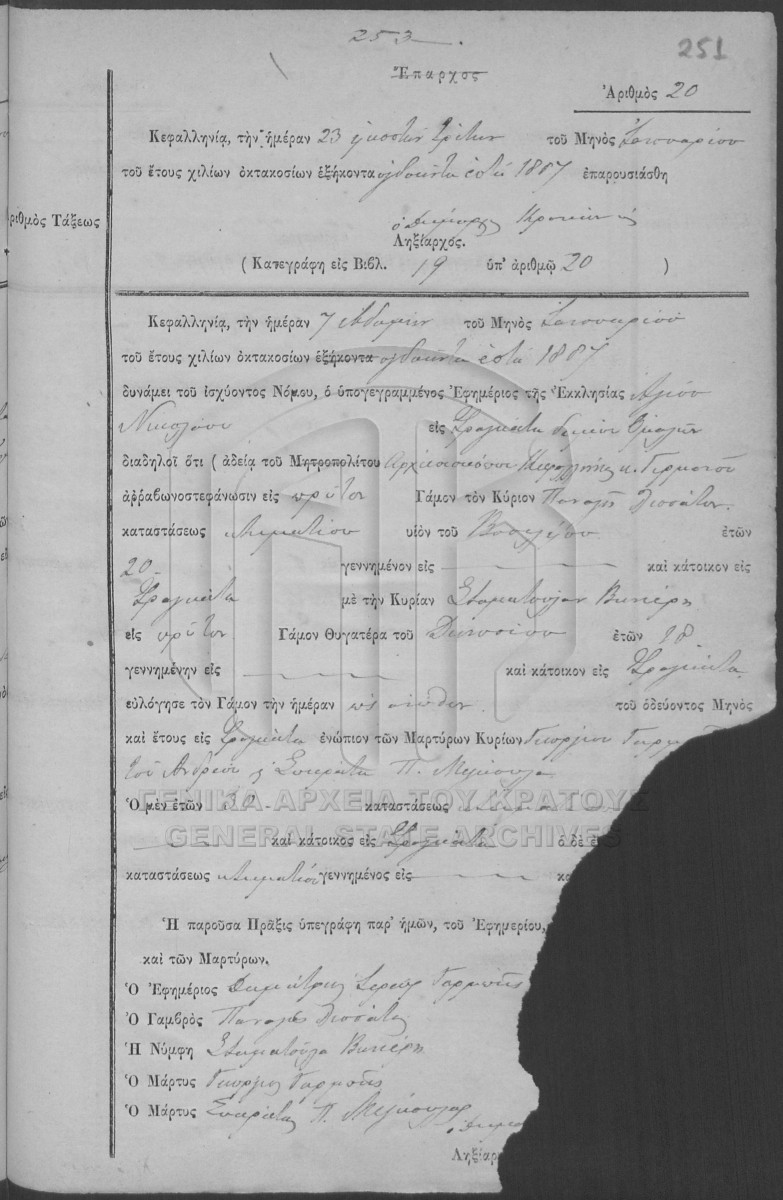 253.
251
Ἔπαρχος
Ἀριθμὸς 20
Κεφαλληνίᾳ, τὴν ἡμέραν 23 εἰκοστὴν τρίτην τοῦ Μηνὸς Ἰαννουαρίου
τοῦ ἔτους χιλίων ὀκτακοσίων ἑξήκοντα ὀγδοῆντα ἑπτά 1887 ἐπαρουσιάσθη
ριθμὸς Τάξεως
ὁ Δήμαρχος
Ληξίαρχός.
( Κατεγράφη εἰς Βιβλ. 19 ὑπ' ἀριθμῷ 20 )
Κεφαλληνίᾳ, τὴν ἡμέραν 7 εβδόμην τοῦ Μηνὸς Ἰαννουαρίου
τοῦ ἔτους χιλίων ὀκτακοσίων ἑξήκοντα ὀγδοῆντα ἑπτά 1887
δυνάμει τοῦ ἰσχύοντος Νόμου, ὁ ὑπογεγραμμένος Ἐφημέριος τῆς Ἐκκλησίας Ἁγίου
Νικολάου εἰς Φραγκάτα δήμου Ὁμαλῶν
διαδηλοῖ ὅτι ( ἀδείᾳ τοῦ Μητροπολίτου Ἀρχιεπισκόπου Κεφαλληνίας κ. Γερμανοῦ
ἀῤῥαβωνοστεφάνωσιν εἰς πρῶτον Γάμον τὸν Κύριον Παναγῆ Λιοσάτον
καταστάσεως κτηματίου υἱὸν τοῦ Βασιλείου ἐτῶν
20 γεννημένον εἰς καὶ κάτοικον εἰς
Φραγκάτα μὲ τὴν Κυρίαν Σταματούλαν
εἰς πρῶτον Γάμον Θυγατέρα τοῦ Διονυσίου ἐτῶν 18
γεννημένην εἰς καὶ κάτοικον εἰς Φραγκάτα
εὐλόγησε τὸν Γάμον τὴν ἡμέραν ὡς ἄνωθεν τοῦ ὁδεύοντος Μηνὸς
καὶ ἔτους εἰς Φραγκάτα ἐνώπιον τῶν Μαρτύρων Κυρίων Γεωργίου
τοῦ Ἀνδρέου κ Σωκράτη Π.
Ὁ μὲν ἐτῶν καταστάσεως
ΓΕΝΙΚΑ ΑΡΧΕΙΑ ΤΟΥ ΚΡΑΤΟΥΣ
GENERAL STATE ARCHIVES
καὶ κάτοικος εἰς Φραγκάτα ὁ δὲ ἐ
καταστάσεως κτηματίου γεννημένος εἰς κα
Ἡ παροῦσα Πρᾶξις ὑπεγράφη παρ' ἡμῶν, τοῦ Ἐφημερίου,
καὶ τῶν Μαρτύρων.
Ὁ Ἐφημέριος Δημήτριος Ἱερεὺς Γαρμπῆς
Ὁ Γαμβρὸς Παναγῆς Λιοσάτος
Ἡ Νύμφη Σταματούλα
Ὁ Μάρτυς Γεώργιος Γαρμπῆς
Ὁ Μάρτυς Σωκράτης Π.
Ληξίαρ